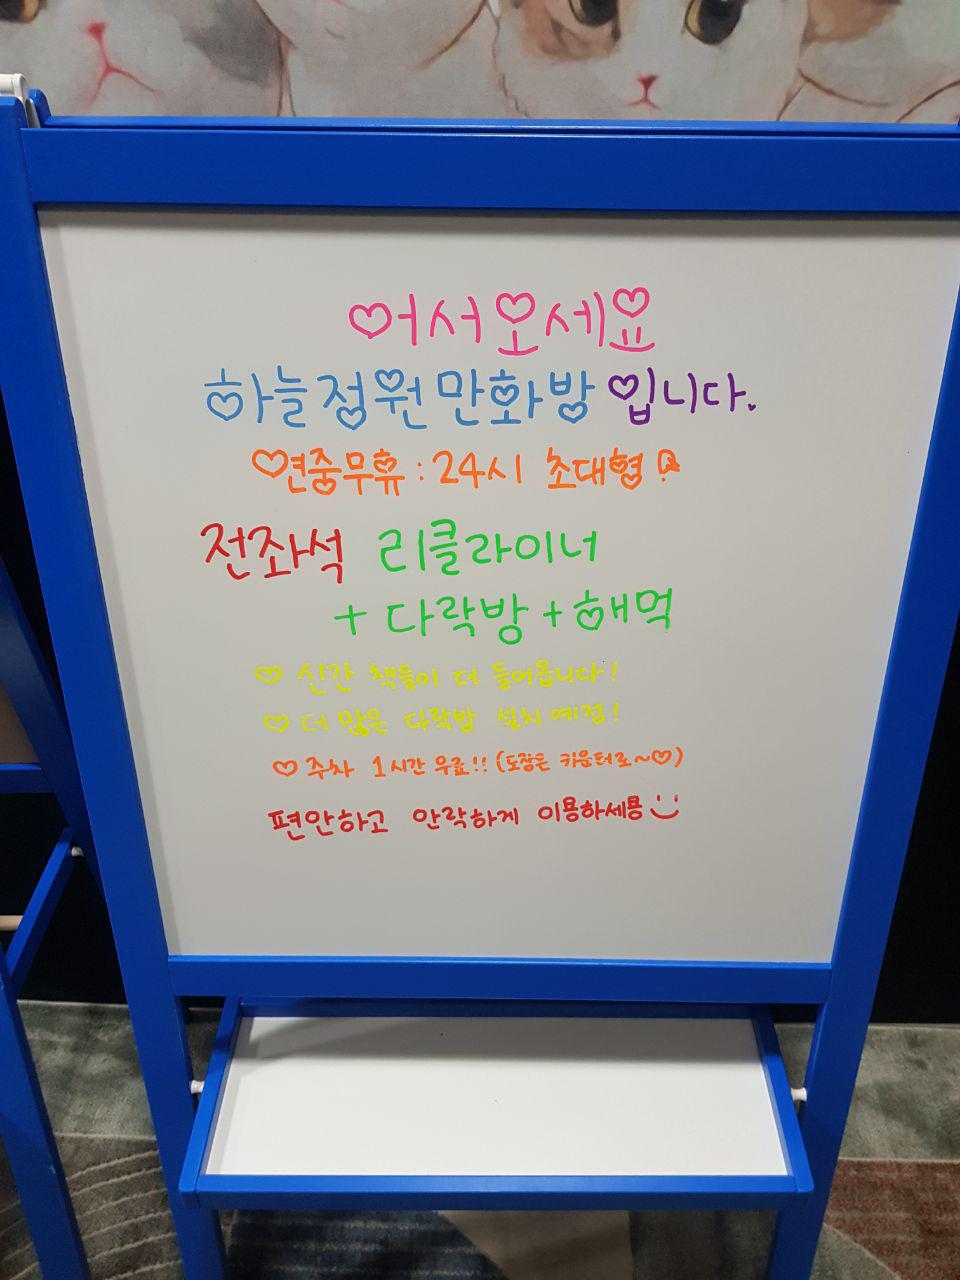 어서오세요
하늘정원만화방입니다.
연중무휴 : 24시 초대형!
전좌석 리클라이너
+ 다락방 + 해먹
♡ 신간 책들이 더 들어옵니다!
♡ 더 많은 다락방 설치 예정!
♡ 주차 1시간 무료!! (도장은 카운터로~♡)
편안하고 안락하게 이용하세용